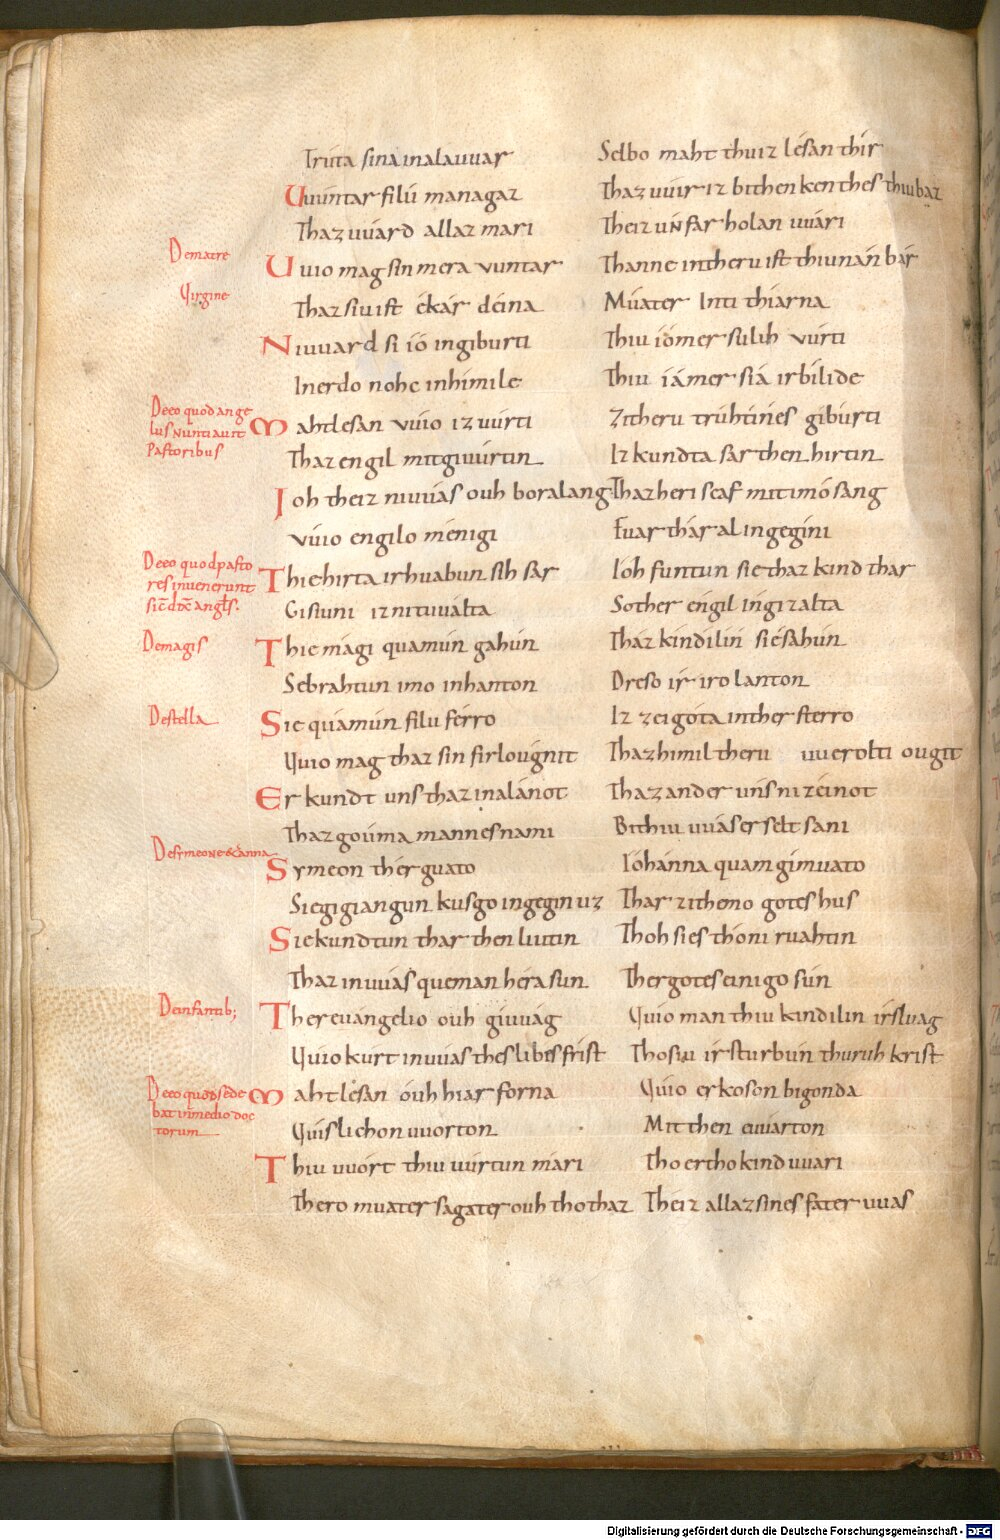 Trúta sina in alauuar Selbo maht thu iz lésan thír
Uuúntar filú managaz Thaz uuir iz bithenkenthes thiu baz
Thaz uuárd allaz mari Theiz unsar holan uuári
De matre Uuio mag sin mera vuntar Thanne in theru ist thiu nán bár
Virgine Thaz siu ist ékár déina Múater Inti thiarna
Ni uuard si íó in giburti Thiu íómer sulih vúrti
In erdo nohe in himile Thiu íámer siá irbílide
De eo quod ange
lus nuntiauit Maht lesan vuio iz vúrti Zi theru trúhtines gibúrti
Pastoribus Thaz engil mit giuúrtin Iz kundta sar then hirtin
Ioh theiz ni uuás ouh boralang Thaz heriscaf mit imo sang
vúio engilo ménigi Fuar thár al ingegini
De eo quod pasto
res inuenerunt Thie hirta irhuabun sih sar Ióh funtun sie thaz kind thar
sic̄ dic̄t angls. Gisiuni iz ni tuuálta So ther éngil in gizalta
De magis Thie mági quamún gahún Tház kindilin síe sahún
Se brahtun imo in hanton Dreso ír iro lanton
De stella Sie quámún filu férro Iz zeigóta in ther sterro
Vuio mag thaz sin firlougnit Thaz himil theru uuerolti ougit
Er kundt uns thaz in alánot Thaz ander úns ni zéinot
Thaz gouma mannes nami Bithiu uuás er selt sani
De symeone & anna Symeon thér guato Ióh ánna quam gimuato
Sie gigiangun kusgo ingegin uz Thar zi themo gotes hus
Sie kundtun thar then liutin Thoh sies thoni ruahtin
Thaz in uuás queman héra sun Ther gotes einigo sún
De infantib; Ther euangelio ouh giuuág Vuio man thiu kindilin írsluag
Vuio kurt in uuas thes libes frist Tho siu írsturbún thuruh krist
De eo quod sede Maht lésan óuh hiar forna Vuio er koson bigonda
bat in medio doc
torum Vuislichon uuorton Mit then euuarton
Thiu uuórt thiu uúrtun mári Tho er tho kind uuari
Thero muater sagater ouh tho thaz Theiz allaz sines fater uuas
Digitalisierung gefördert durch die Deutsche Forschungsgemeinschaft - DFG